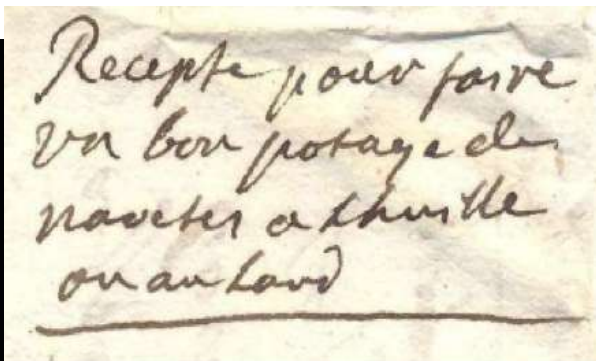 Recepte pour faire
vn bon potage de
navetes a Lhuille
ou au Lard